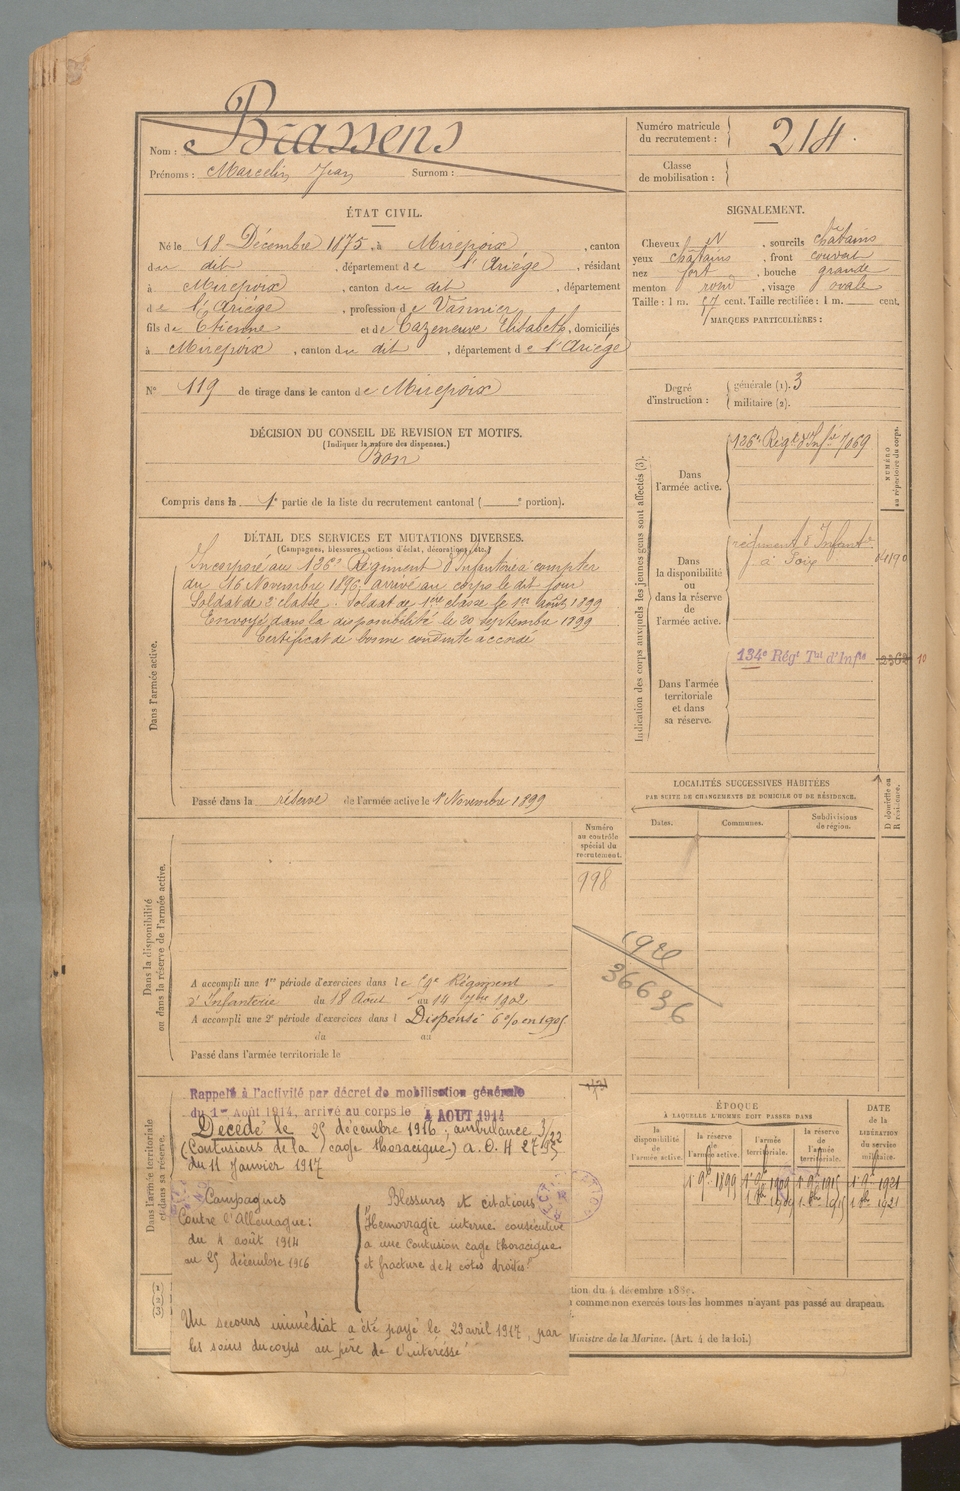 Nom : Brassens
Prénoms : Marcelin Jean Surnom :
Numéro matricule du recrutement : 214
Classe de mobilisation :
ÉTAT CIVIL.
Né le 18 Décembre 1875, à Mirepoix, canton
du dit, département de l'Ariége, résidant
à Mirepoix, canton du dit, département
de l'Ariége, profession de Vannier
fils de Etienne et de Cazeneuve Elisabeth, domiciliés
à Mirepoix, canton du dit, département de l'Ariége
SIGNALEMENT.
Cheveux N, sourcils châtains
yeux châtains, front couvert
nez fort, bouche grande
menton rond, visage ovale
Taille : 1 m. 57 cent. Taille rectifiée : 1 m. cent.
MARQUES PARTICULIÈRES :
N° 119 de tirage dans le canton de Mirepoix
Degré d'instruction : générale (1). 3
militaire (2).
DÉCISION DU CONSEIL DE REVISION ET MOTIFS.
(Indiquer la nature des dispenses.)
Bon
Compris dans la 1e partie de la liste du recrutement cantonal ( e portion).
DÉTAIL DES SERVICES ET MUTATIONS DIVERSES.
(Campagnes, blessures, actions d'éclat, décorations, etc.)
Dans l'armée active.
Incorporé au 136e Régiment d'Infanterie à compter
du 16 Novembre 1896, arrivé au corps le dit jour
Soldat de 2e classe. Soldat de 1ère classe le 1er août 1899
Envoyé dans la disponibilité le 20 septembre 1899
Certificat de bonne conduite accordé
Passé dans la réserve de l'armée active le 1er Novembre 1899
Indication des corps auxquels les jeunes gens sont affectés (3).
NUMÉRO au répertoire du corps.
Dans l'armée active.
136e Régt d'Infie 7069
Dans la disponibilité ou dans la réserve de l'armée active.
régiment d'Infanterie
à Foix
Dans l'armée territoriale et dans sa réserve.
134e Régt Tal d'Infie 10
LOCALITÉS SUCCESSIVES HABITÉES
PAR SUITE DE CHANGEMENTS DE DOMICILE OU DE RÉSIDENCE.
Dates. Communes. Subdivisions de région.
D domicile ou R résidence.
Dans la disponibilité ou dans la réserve de l'armée active.
Numéro au contrôle spécial du recrutement.
998
36636
A accompli une 1re période d'exercices dans le Régiment
d'Infanterie du 18 Août au 14 7bre 1902
A accompli une 2e période d'exercices dans l Dispensé 6% en 1905
du au
Passé dans l'armée territoriale le
Dans l'armée territoriale et dans sa réserve.
Rappelé à l'activité par décret de mobilisation générale
du 1er Août 1914, arrivé au corps le 4 AOUT 1914
Décédé le 25 décembre 1916, ambulance 3/22
(Contusions de la cage thoracique) a. D. H 27
du 11 Janvier 1917
Campagnes
Contre l'Allemagne :
du 4 août 1914
au 25 décembre 1916
Blessures et citations
Hémorragie interne consécutive
à une contusion cage thoracique
et fracture de 4 côtes droites.
Un secours immédiat a été payé le 23 avril 1917, par
les soins du corps au père de l'intéressé
ÉPOQUE
À LAQUELLE L'HOMME DOIT PASSER DANS
la disponibilité de l'armée active.
la réserve de l'armée active.
l'armée territoriale.
la réserve de l'armée territoriale.
DATE de la LIBÉRATION du service militaire.
1er 9bre 1899 1er 9bre 1909 1er 9bre 1915 1er 9bre 1921
1er 8bre 1909 1er 8bre 1915 1er 8bre 1921
tion du 4 décembre 1889.
comme non exercés tous les hommes n'ayant pas passé au drapeau.
Ministre de la Marine. (Art. 4 de la loi.)